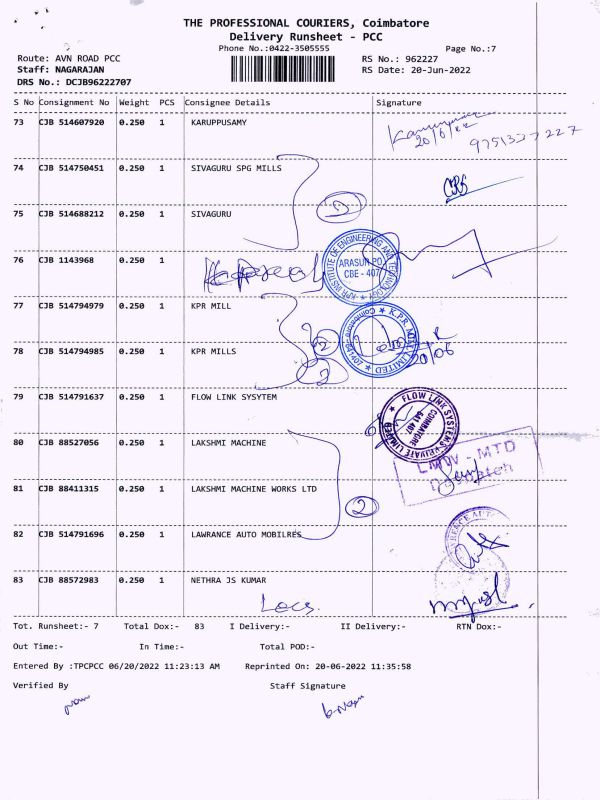 THE PROFESSIONAL COURIERS, Coimbatore
Delivery Runsheet - PCC
Phone No.:0422-3505555
Page No.:7
Route: AVN ROAD PCC
RS No.: 962227
Staff: NAGARAJAN
RS Date: 20-Jun-2022
DRS No.: DCJB96222707
S No Consignment No Weight PCS Consignee Details Signature
73 CJB 514607920 0.250 1 KARUPPUSAMY
20/6/22
9751327227
74 CJB 514750451 0.250 1 SIVAGURU SPG MILLS
2
75 CJB 514688212 0.250 1 SIVAGURU
76 CJB 1143968 0.250 1
KPR INSTITUTE OF ENGINEERING AND TECHNOLOGY
ARASUR PO.
CBE - 407
77 CJB 514794979 0.250 1 KPR MILL
2
K.P.R. MILL LIMITED
78 CJB 514794985 0.250 1 KPR MILLS
20/06
2
79 CJB 514791637 0.250 1 FLOW LINK SYSYTEM
FLOW LINK SYSTEMS PRIVATE LIMITED
COIMBATORE
641 407
80 CJB 88527056 0.250 1 LAKSHMI MACHINE
LMW - MTD
Despatch
81 CJB 88411315 0.250 1 LAKSHMI MACHINE WORKS LTD
2
82 CJB 514791696 0.250 1 LAWRANCE AUTO MOBILRES
83 CJB 88572983 0.250 1 NETHRA JS KUMAR
Tot. Runsheet:- 7 Total Dox:- 83 I Delivery:- II Delivery:- RTN Dox:-
Out Time:- In Time:- Total POD:-
Entered By :TPCPCC 06/20/2022 11:23:13 AM Reprinted On: 20-06-2022 11:35:58
Verified By Staff Signature